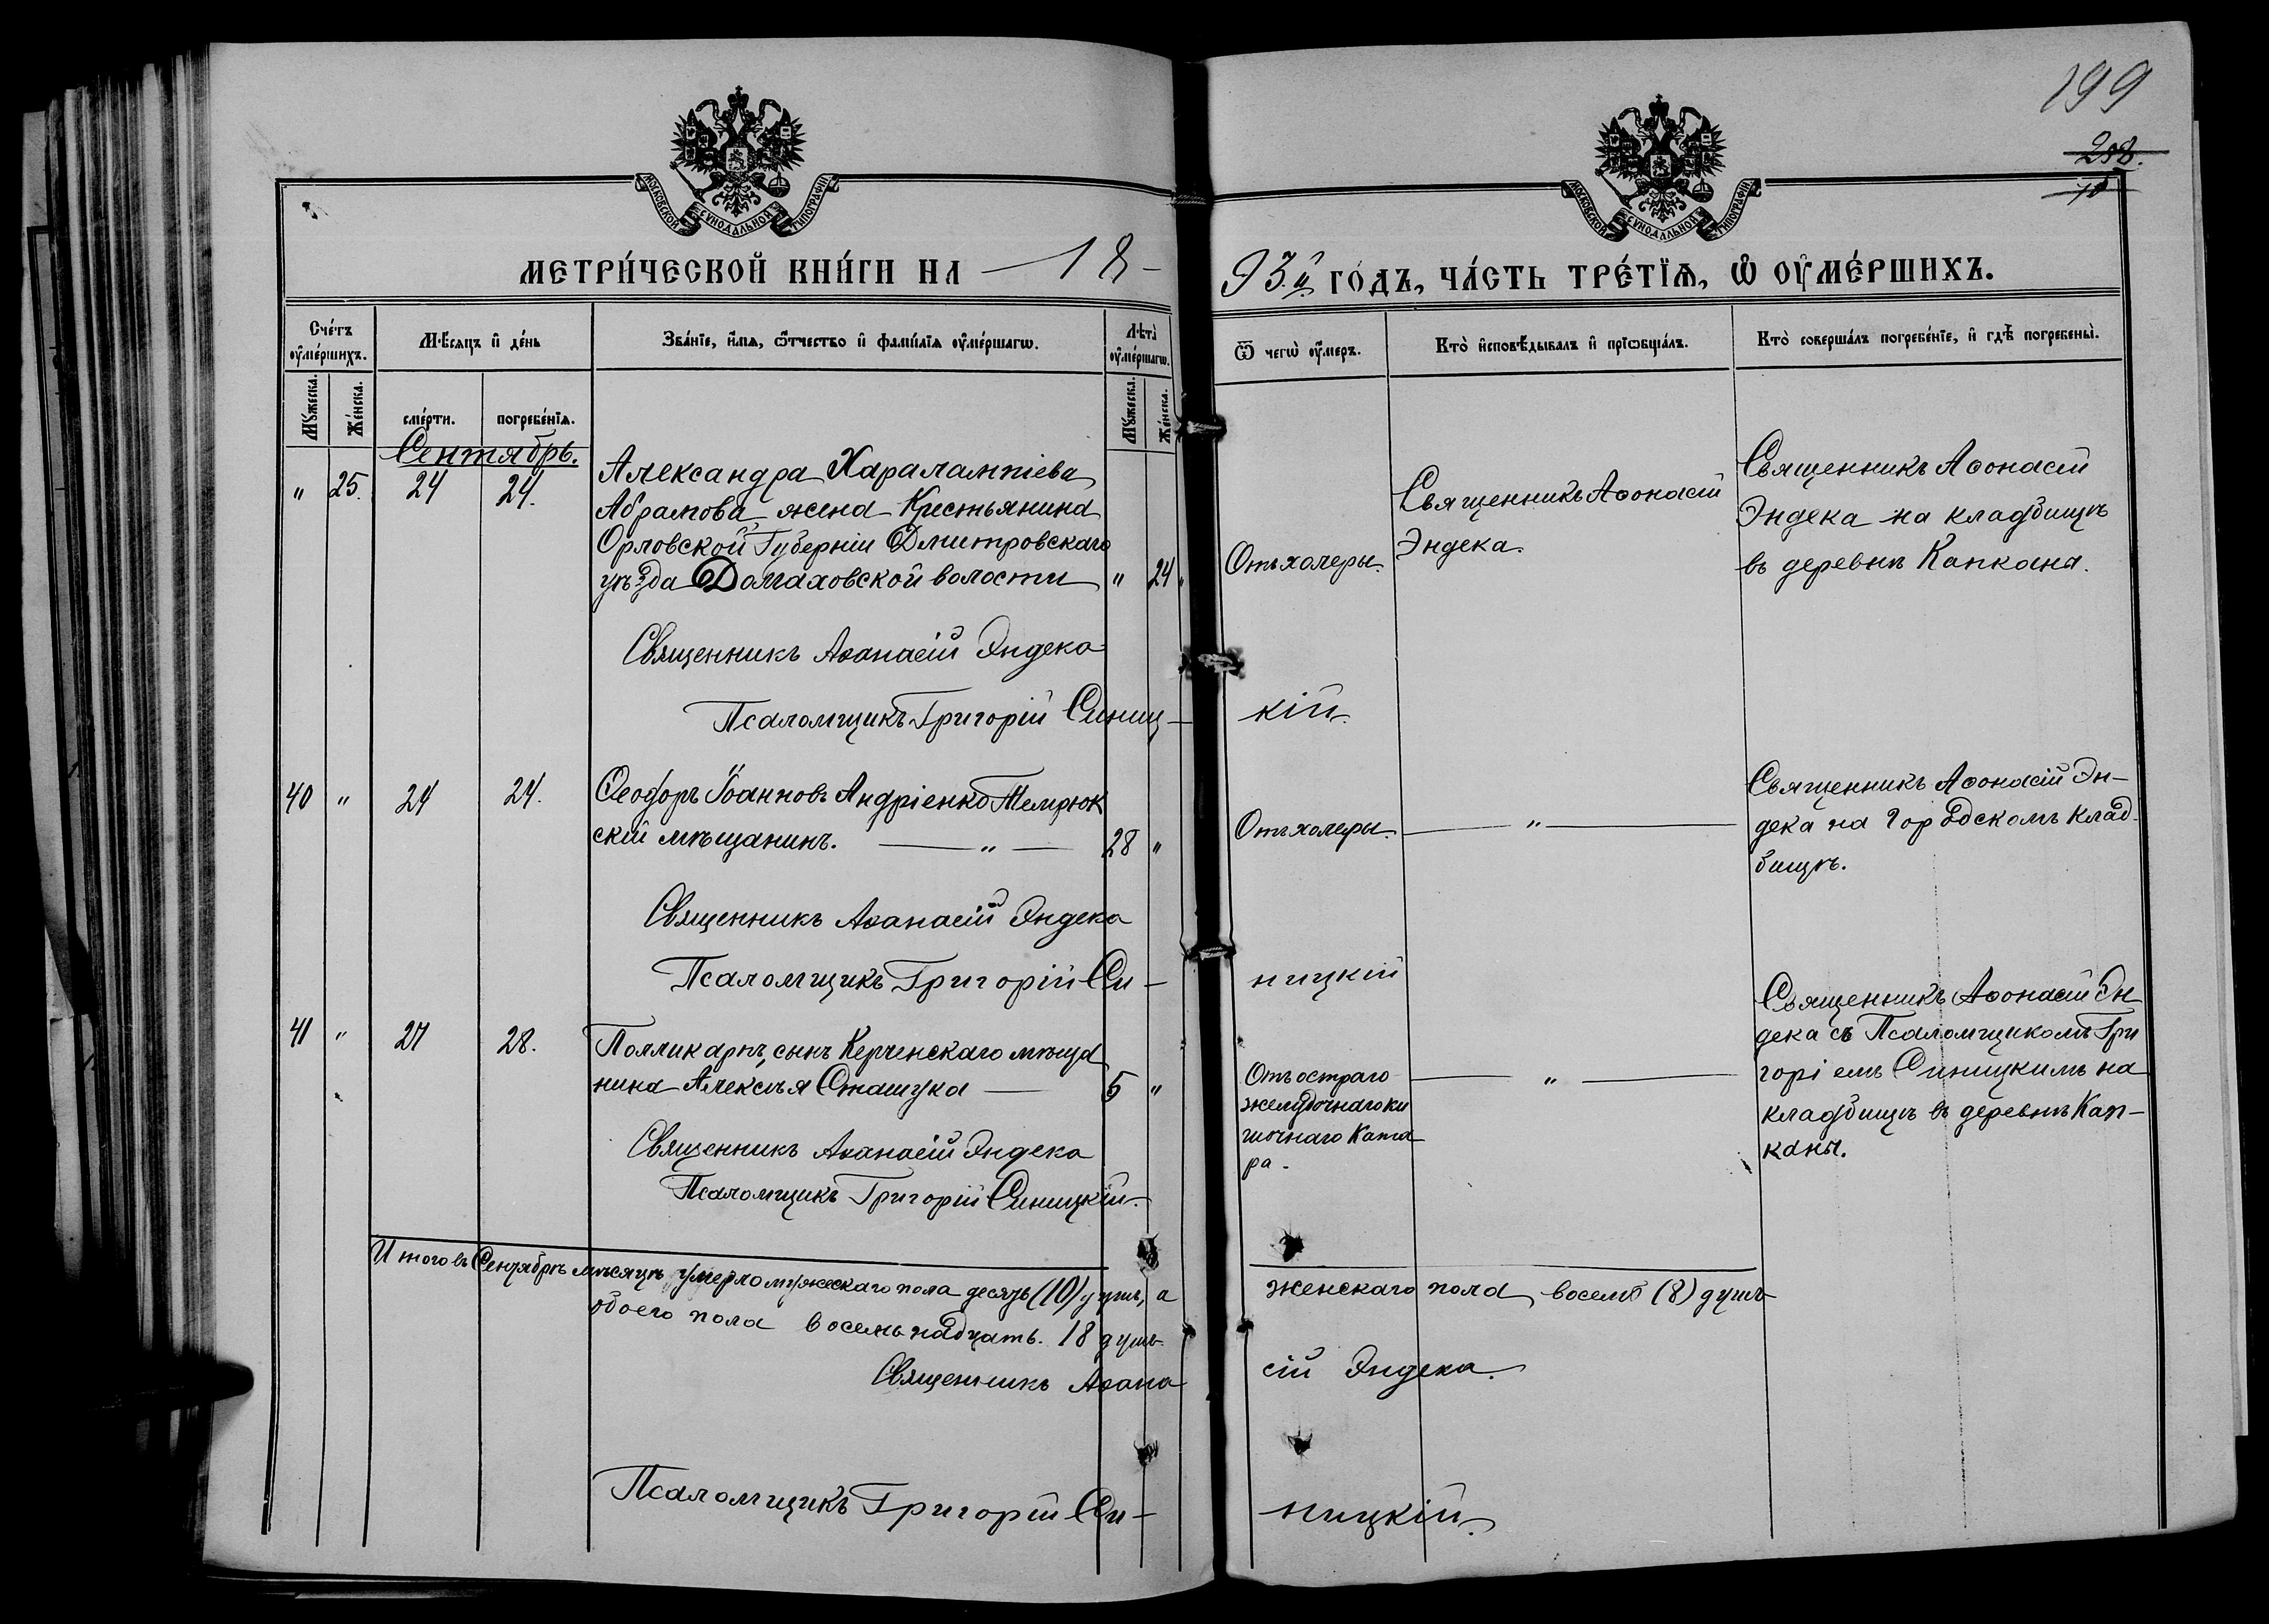 199
208.
МОСКОВСКОЙ СѴНОДАЛЬНОЙ ТИПОГРАФІИ
МОСКОВСКОЙ СѴНОДАЛЬНОЙ ТИПОГРАФІИ
МЕТРИ́ЧЕСКОЙ КНИ́ГИ НА 18-
93й ГО́ДЪ, ЧА́СТЬ ТРЕ́ТІѦ, Ѡ҆ ОУ҆МЕ́РШИХЪ.
Сче́тъ оу҆ме́ршихъ.
Мꙋ́жеска.
Же́нска.
Мѣ́сяцъ и҆ де́нь
сме́рти.
погребе́нїѧ.
Зва́нїе, и҆́мѧ, ѻ҆́тчество и҆ фами́лїѧ оу҆ме́ршагѡ.
Лѣта̀ оу҆ме́ршагѡ.
Мꙋ́жеска.
Же́нска.
Ѿ чегѡ̀ оу҆́меръ.
Кто̀ и҆сповѣ́дывалъ и҆ прїѡбща́лъ.
Кто̀ соверша́лъ погребе́нїе, и҆ гдѣ̀ погребены̀.
Сентябрь.
" 25. 24 24.
Александра Харалампіева
Абрамова, жена Крестьянина
Орловской Губерніи Дмитровскаго
уѣзда Домаховской волости " 24
Отъ холеры.
Священникъ Аѳонасій
Эндека.
Священникъ Аѳонасій
Эндека на кладбищѣ
въ деревнѣ Капкана.
Священникъ Аѳанасій Эндека
Псаломщикъ Григорій Синиц-
кій.
40 " 24 24.
Ѳеодоръ Іоанновъ Андріенко Темрюк
скій мѣщанинъ. — " — 28 "
Отъ холеры. — " —
Священникъ Аѳонасій Эн-
дека на городскомъ клад-
бищѣ.
Священникъ Аѳанасій Эндека
Псаломщикъ Григорій Си-
ницкій
41 " 27 28.
Полликарпъ, сынъ Керченскаго мѣща
нина Алексѣя Сташука — 5 "
Отъ остраго
желудочнаго ки
шечнаго Ката
ра.
— " —
Священникъ Аѳонасій Эн
дека съ Псаломщикомъ Гри
горіемъ Синицкимъ на
кладбищѣ въ деревнѣ Кап-
каны.
Священникъ Аѳанасій Эндека
Псаломщикъ Григорій Синицкій.
Итого въ Сентябрѣ мѣсяцѣ умерло мужескаго пола десять (10) душъ, а
женскаго пола восемь (8) душъ
обоего пола восемьнадцать. 18 душъ.
Священникъ Аѳана
сій Эндека.
Псаломщикъ Григорій Си-
ницкій.